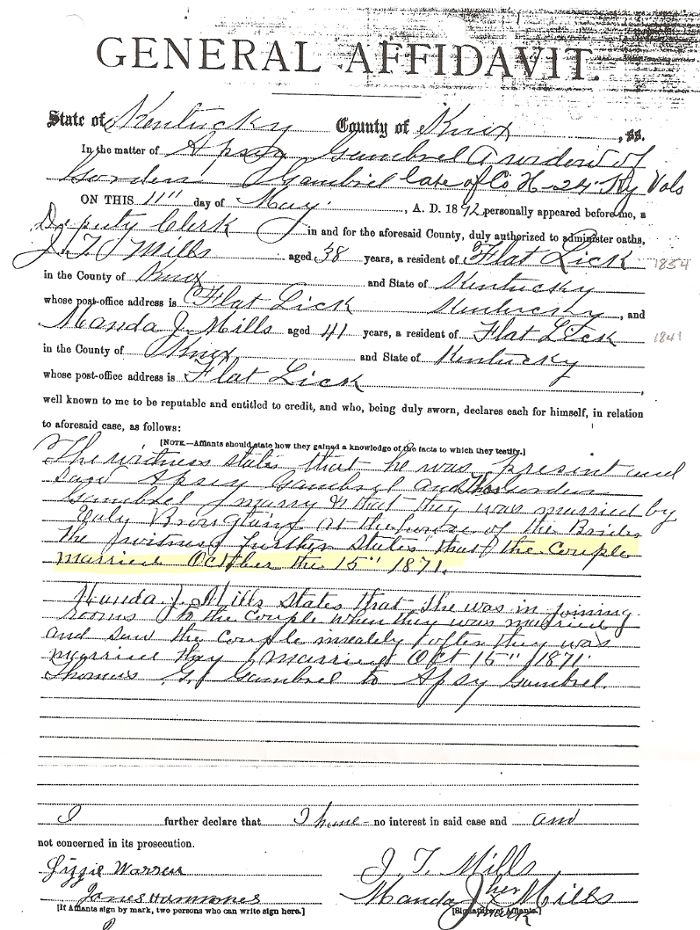 GENERAL AFFIDAVIT.
State of Kentucky County of Knox, ss.
In the matter of Apsy Gambrel A widow of
Gorden Gambrel late of Co H 24" Ky Vols
ON THIS 11" day of May, A. D. 1892 personally appeared before me, a
Deputy Clerk in and for the aforesaid County, duly authorized to administer oaths,
J. T. Mills aged 38 years, a resident of Flat Lick 1854
in the County of Knox and State of Kentucky
whose post-office address is Flat Lick Kentucky, and
Manda J. Mills aged 41 years, a resident of Flat Lick 1841
in the County of Knox and State of Kentucky
whose post-office address is Flat Lick
well known to me to be reputable and entitled to credit, and who, being duly sworn, declares each for himself, in relation
to aforesaid case, as follows:
[NOTE.—Affiants should state how they gained a knowledge of the facts to which they testify.]
The witness states that he was present and
saw Apsy Gambrel and Thos Gorden
Gambrel marry & that they was married by
at the house of the Brides
the witness further States that the Couple
married October the 15" 1871.
Manda J. Mills States that She was in joining
rooms to the Couple when they was married
and saw the Couple after they was
married they married Oct 15" 1871.
Thomas G. Gambrel to Apsy Gambrel.
I further declare that I have no interest in said case and and
not concerned in its prosecution.
Lizzie Warren J. T. Mills
James Hammones Manda J. her Mills
[If Affiants sign by mark, two persons who can write sign here.] [Signature of Affiants.]
mark